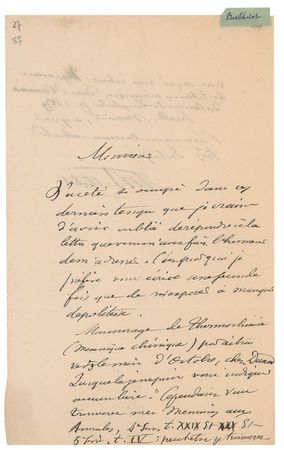 27
87
Berthelot
Monsieur
J'ai été si occupé dans ces
derniers temps que je crains
d'avoir oublié de répondre à la
lettre que vous m'avez fait l'honneur
de m'adresser. C'est pourquoi je
préfère vous écrire une seconde
fois que de m'exposer à manquer
de politesse.
Mon ouvrage de Thermochimie
(Mécanique chimique) paraîtra
vers le mois d'Octobre, chez Dunod
Jusque là je ne puis vous indiquer
aucun livre. Cependant vous
trouverez mes Mémoires aux
Annales, 4e Sér. t. XXIX et XXX et
5e Sér. t. IV : peut être y trouverez